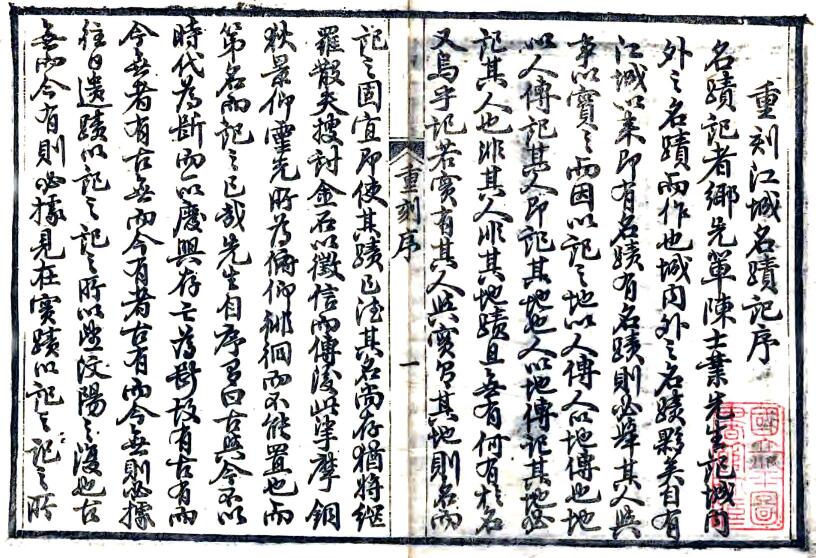 重刻江城名蹟記序
名蹟記者鄉先輩陳士業先生記城內
外之名蹟而作也城內外之名蹟夥矣自有
江城以來即有名蹟有名蹟則必舉其人與
事以實之而因以記之地以人傳人以地傳也地
以人傳記其人即記其地也人以地傳記其地必
記其人也非其人非其地蹟且無有何有於名
又烏乎記若實有其人與實有其地則名而
重刻序
一
記之固宜即使其蹟已湮其名尚存猶將網
羅散失搜討金石以徵信而傳後此摩銅
狄景仰靈光所為俯仰徘徊而不能置也而
第名而記之已哉先生自序有曰古與今不以
時代為斷而以廢興存亡為斷故有古有而
今無者有古無而今有者古有而今無則必據
往日遺蹟以記之記之所以
陽之後也古
無而今有則必據見在實蹟以記之記之所